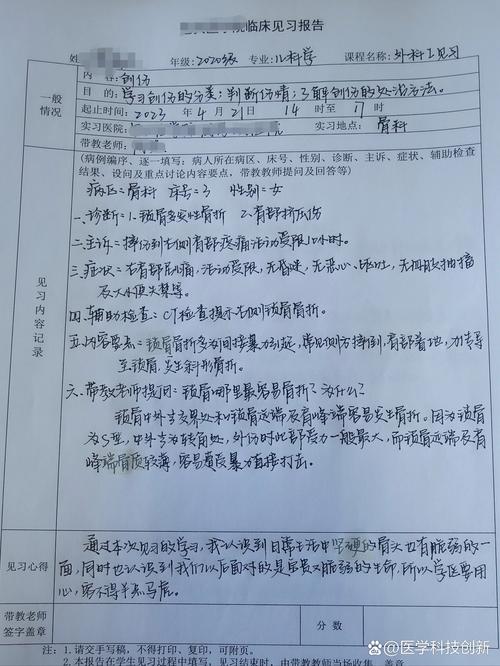 医学院临床见习报告
姓 年级: 2020级 专业: 儿科学 课程名称: 外科I见习
一般情况
内容: 创伤
目的: 学习创伤的分类; 判断伤情; 了解创伤的处治方法。
起止时间: 2023 年 4 月 21 日 14 时至 17 时
实习医院: 实习地点: 骨科
带教老师:
见习内容记录
(病例编序、逐一填写: 病人所在病区、床号、性别、诊断、主诉、症状、辅助检查
结果、设问及重点讨论内容要点,带教教师提问及回答等)
病区=骨科 床号=3 性别=女
一.诊断=1.锁骨多发性骨折 2.肩部挤压伤
二.主诉=摔伤致右侧肩部疼痛活动受限10小时。
三.症状=右肩部肿痛,活动受限,无昏迷,无恶心、呕吐,无四肢抽搐
及大小便失禁等。
四.辅助检查:CT检查提示右侧锁骨骨折。
五.内容要点:锁骨骨折多为间接暴力引起,常见侧方摔倒,肩部着地,力传导
至锁骨,发生斜形骨折。
六.带教老师提问:锁骨哪里最容易骨折?为什么?
锁骨中外交界处和锁骨远端及肩峰端容易发生骨折。因为锁骨
为S型,中外为转角处,外伤时此部受力一般最大,而锁骨远端及肩
峰端骨质较薄,容易受暴力直接打击。
见习心得
通过本次见习的学习,我认识到日常生活中坚硬的骨头也有脆弱的一
面,同时也认识到我们以后面对的是宝贵又脆弱的生命,所以学医要用
心,容不得半点马虎。
带教老师签字盖章
分数
批改日期
注: 1. 请交手写稿,不得打印、复印,可附页。
2. 本报告在学生见习过程中填写,见习结束时,由带教教师当场填写、盖章
医学科技创新